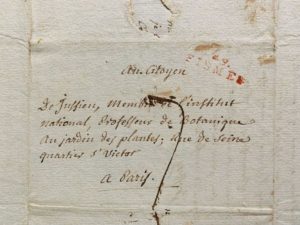 Au Citoyen
De Jussieu, Membre de l'institut
national, Professeur de Botanique
Au jardin des plantes; Rue de Seine
quartier St Victor
A Paris.
FISMES